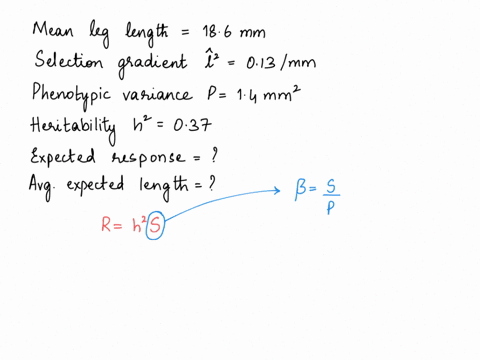 Mean leg length = 18.6 mm
Selection gradient l̂² = 0.13/mm
Phenotypic variance P = 1.4 mm²
Heritability h² = 0.37
Expected response = ?
Avg. expected length = ?
β = S/P
R = h²S